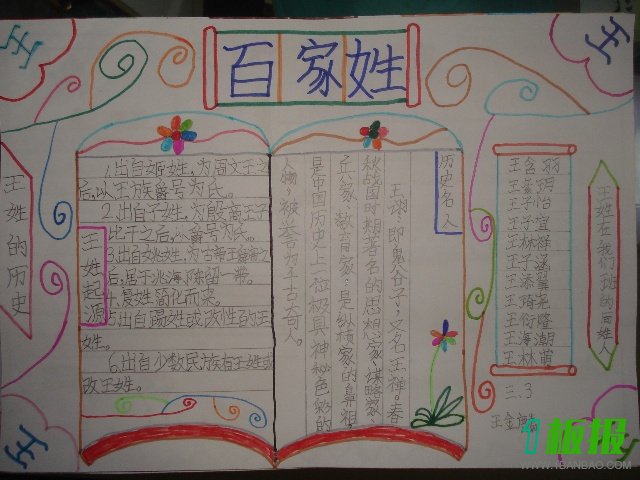 王
百家姓
王
王姓的历史
王姓起源
1.出自姬姓,为周文王之
后,以王族爵号为氏。
2.出自子姓,为殷商王子
比干之后,以爵号为氏。
3.出自妫姓,为古帝王虞舜之
后,居于洮海陈留一带。
4.复姓简化而来。
5.出自赐姓或改性的王
姓。
6.出自少数民族有王姓或
改王姓。
历史名人
王诩,即鬼谷子;又名王禅。春
秋战国时期著名的思想家、谋略家、
兵家、教育家;是纵横家的鼻祖。
是中国历史上一位极具神秘色彩的
人物,被 誉为千古奇人。
王含羽
王 玥
王子怡
王子宜
王林祥
王子涵
王添
王琦
王衍隆
王海潮
王林萌
王姓在我们班的同姓人
三.3
王金
王
1板报
WWW.1BANBAO.COM